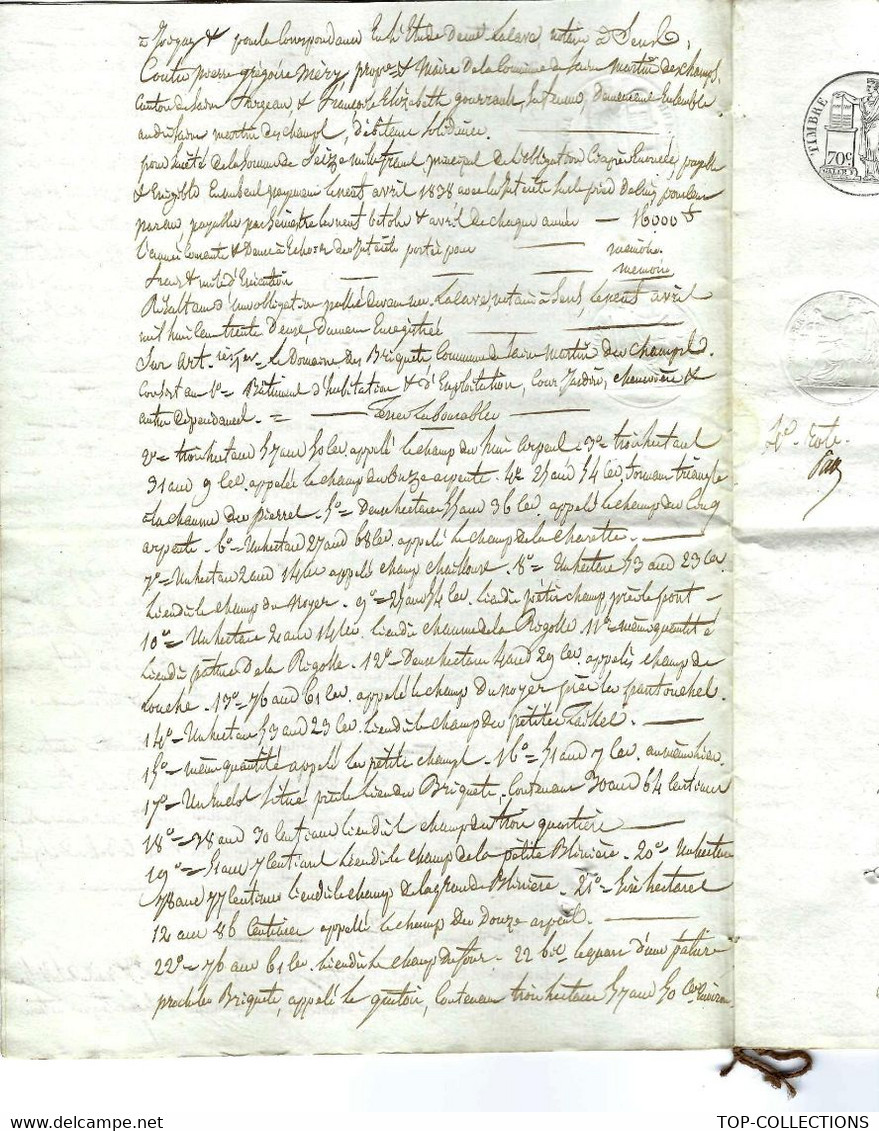 à Joigny & pour la Correspondance En l'Etude de me Lalave, notaire à Sens,
Contre pierre grégoire Méry, propre & Maire de la Commune de Saint Martin des champs,
Canton de Saint Fargeau, & Elizabeth sa femme, demeurant Ensemble
audit Saint Martin des champs, débiteurs Solidaires.
pour Sureté de la Somme de Seize mille francs, principal de l'obligation Ci après Enoncée, payable
& Exigible En un Seul payement le neuf avril 1838 avec les Intérêts Sur le pied de Cinq pour Cent
par an payables par Sémestre les neuf octobre & avril de chaque année — 16000 f
deux années d'Intérêts portés pour — mémoire
frais & mise d'Exécution — mémoire
Résultant d'une obligation passée devant me Lalave, notaire à Sens, le neuf avril
mil huit Cent trente deux, dument Enregistrée
Sur Art. 1er Le Domaine des Briquets Commune de Saint Martin des champs.
Consistant 1o = Bâtiment d'habitation & d'Exploitation, Cour Jardin, chenevière &
autres dépendances. = Terres Labourables
2o = trois hectares 57 ares 50 Cex appelé le champ des huit Arpens. 3o = trois hectares
31 ares 9 Cex. appelé le champ des onze arpents. 4o 25 ares 54 Cex, formant triangle
à la chaume des pierres. 5o = Deux hectares 55 ares 36 Cex appelé le champ des Cinq
arpents. 6o = Un hectare 27 ares 68 Cex. appelé le champ de la charette.
7o = Un hectare 2 ares 14 Cex appelé champ chailloux. 8o = Un hectare 53 ares 23 Cex.
Lieudit le champ du Noyer. 9o = 25 ares 54 Cex. Lieudit petit champ, près le pont
10o = Un hectare 2 ares 14 Cex lieudit chaume de la Rigolle. 11o = même quantité à
Lieudit pature de la Rigolle. 12o = Deux hectares 4 ares 29 Cex. appelés champ de
Louche. 13o = 76 ares 61 Cex appelé le champ du noyer près les
14o = Un hectare 53 ares 23 Cex. lieudit le champ des petites Tailles.
15o = même quantité appelé les petits champs. 16o = 51 ares 7 Cex. au même lieu.
17o = Un situé près le lieu des Briquets, Contenant 30 ares 64 Centiares
18o = 38 ares 30 Centiares lieudit champ des trois quartiers
19o = 51 ares 7 Centiares lieudit le champ de la petite Blinière. 20o = Un hectare
78 ares 77 Centiares lieudit le champ de la grande Blinière. 21o = Trois hectares
12 ares 86 Centiares appelé le champ des Douze arpens.
22o = 76 ares 61 Cex. lieudit le champ du four. 22 bis. le quart d'une pature
proche les Briquets, appelé le , Contenant trois hectares 57 ares 50 Cex Environ
TIMBRE
70c
TOP-COLLECTIONS